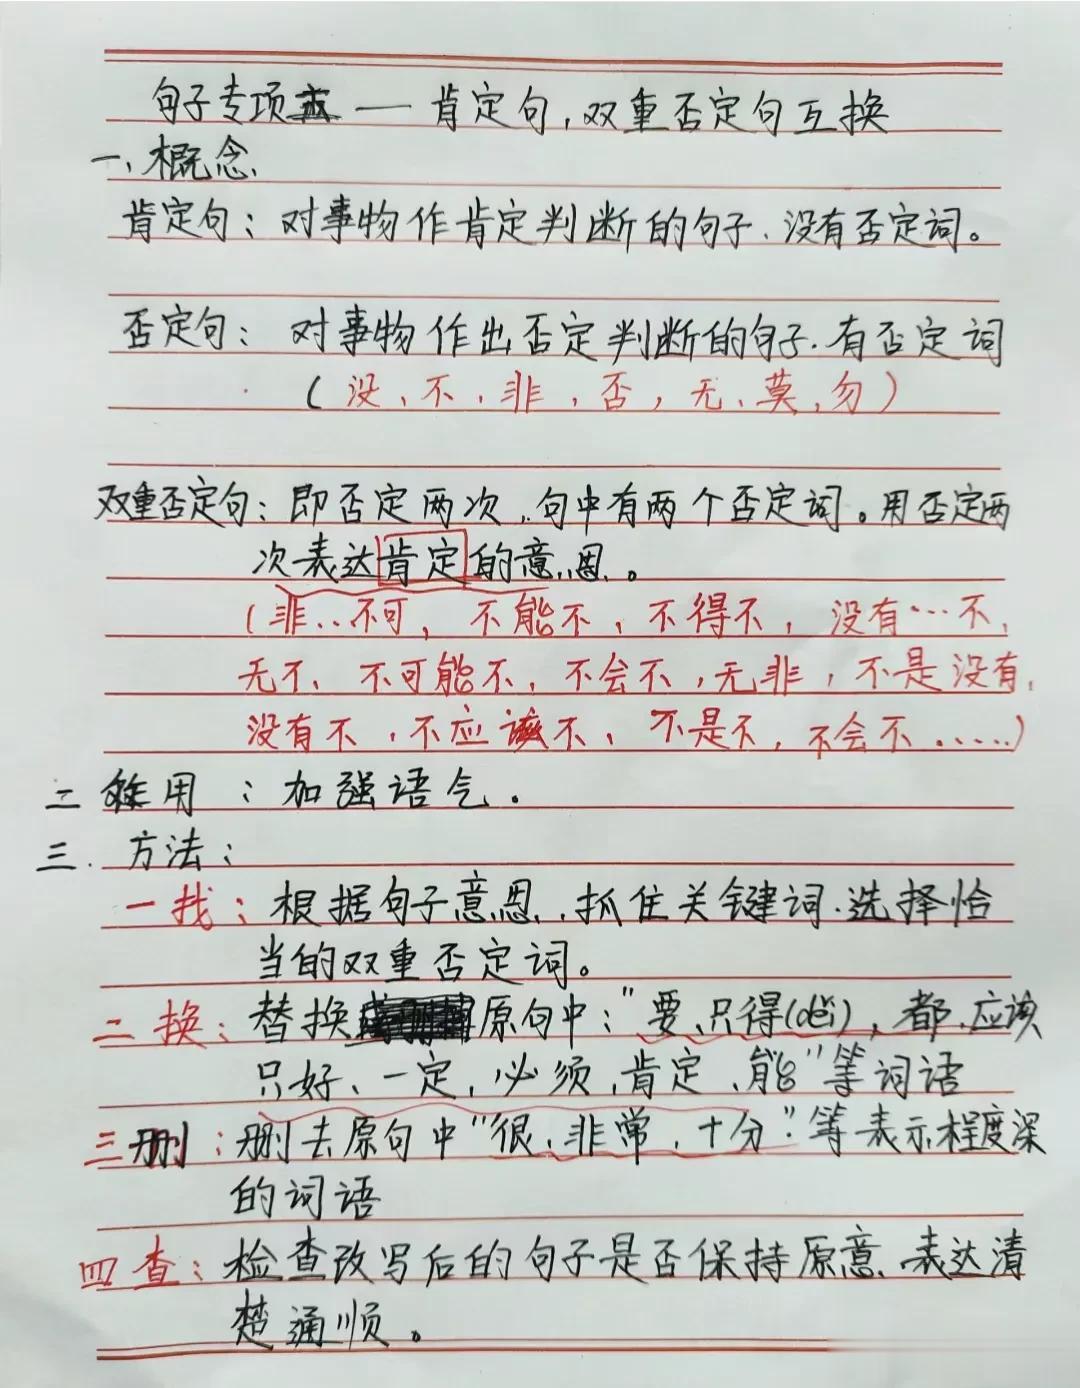 句子专项 —— 肯定句,双重否定句互换
一、概念、
肯定句:对事物作肯定判断的句子、没有否定词。
否定句:对事物作出否定判断的句子.有否定词
(没、不、非,否,无、莫,勿)
双重否定句:即否定两次,句中有两个否定词。用否定两
次表达肯定的意思。
(非..不可,不能不、不得不,没有…不,
无不、不可能不,不会不,无非,不是没有,
没有不,不应该不、不是不,不会不……)
二 作用:加强语气.
三.方法:
一找:根据句子意思,抓住关键词.选择恰
当的双重否定词。
二换:替换原句中:"要、只得(děi),都、应该
只好、一定,必须,肯定、能"等词语
三删:删去原句中"很、非常,十分"等表示程度深
的词语
四查:检查改写后的句子是否保持原意、表达清
楚通顺。